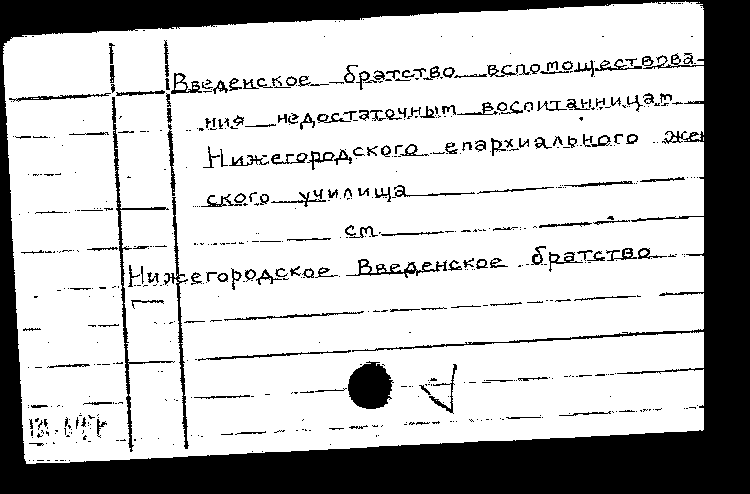 Введенское братство вспомоществова-
ния недостаточным воспитанницам
Нижегородского епархиального жен
ского училища
см.
Нижегородское Введенское братство